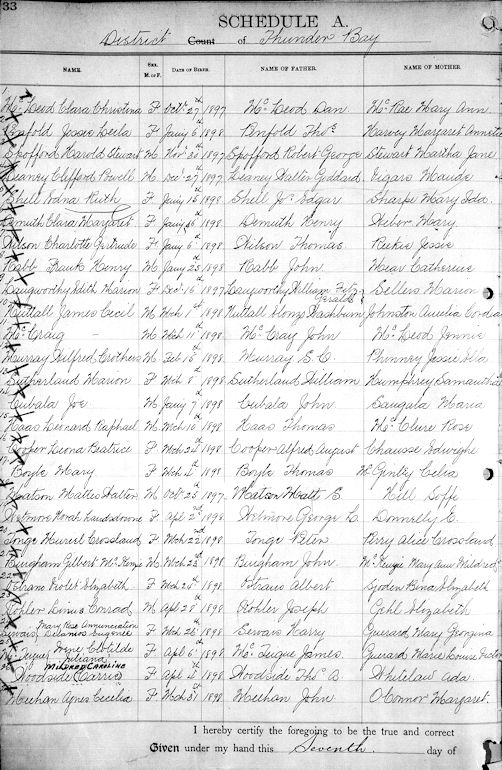 33
SCHEDULE A.
District Count of Thunder Bay
NAME. SEX. M. or F. DATE OF BIRTH. NAME OF FATHER. NAME OF MOTHER.
McLeod Clara Christina F Oct 27th 1897 McLeod Dan McRae Mary Ann
Penfold Jessie Leila F Jany 6th 1898 Penfold Thos Harvey Margaret Annetta
Spofford Harold Stewart M Nov 30th 1897 Spofford Robert George Stewart Martha Jane
Leaney Clifford Powell M Dec 27th 1897 Leaney Walter Goddard Vigars Maude
Shell Ivana Ruth F Jany 15th 1898 Shell Jos Edgar Sharpe Mary Ida
Demuth Clara Margaret F Jany 16th 1898 Demuth Henry Weber Mary
Wilson Charlotte Gertrude F Jany 6th 1898 Wilson Thomas Reekie Jessie
Rabb Frank Henry M Jany 25th 1898 Rabb John Wear Catherine
Langworthy Edith Marion F Dec 16th 1897 Langworthy William Fitz Gerald Sellers Marion
Nuttall James Cecil M Mch 1st 1898 Nuttall Alonzo Washburn Johnston Amelia
McCraig - M Mch 11th 1898 McCray John McLeod Jennie
Murray Wilfred Crothers M Feb 15th 1898 Murray S C Phinney Jessie
Sutherland Marion F Mch 8th 1898 Sutherland William Humphrey Samantha
Cubala Joe M Jany 7th 1898 Cubala John Saugala Maria
Haas Leonard Raphael M Mch 16th 1898 Haas Thomas McClure Rose
Cooper Leona Beatrice F Mch 24th 1898 Cooper Alfred August Chausse Edwidge
Boyle Mary F Mch 4th 1898 Boyle Thomas McGinty Celia
Matson Mattes Walter M Oct 25th 1897 Matson Matt E Hill Soffe
Wetmore Norah Landsdowne F Apl 2nd 1898 Wetmore George L Donnelly E.
Tonge Muriel Crossland F Mch 22nd 1898 Tonge Peter Perry Alice Crossland
Bingham Gilbert McKenzie M Mch 23rd 1898 Bingham John McKenzie Mary Ann Mildred
Ostrans Violet Elizabeth F Mch 24th 1898 Ostrans Albert Sjoden Bina Elizabeth
Kohler Linus Conrad M Apl 28th 1898 Kohler Joseph Gehl Elizabeth
Servais Mary Rose Annunciation Delamos Eugenie F Mch 26th 1898 Servais Harry Guerard Mary Georgina
McTeigue Irene Clotilde Juliana F Apl 6th 1898 McTeigue James Guerard Marie Louise
MILDRED CAROLINE
Woodside Carrie F Apl 4th 1898 Woodside Thos B Whitelaw Ada
Meehan Agnes Cecelia F Mch 31st 1898 Meehan John O'Connor Margaret.
I hereby certify the foregoing to be the true and correct
Given under my hand this Seventh day of